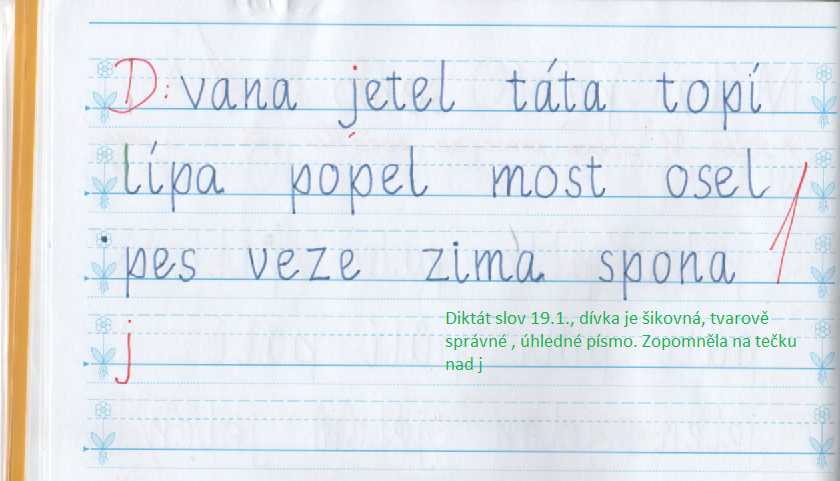 D: vana jetel táta topí
lípa popel most osel
pes veze zima spona
j
Diktát slov 19.1., dívka je šikovná, tvarově
správné , úhledné písmo. Zopomněla na tečku
nad j